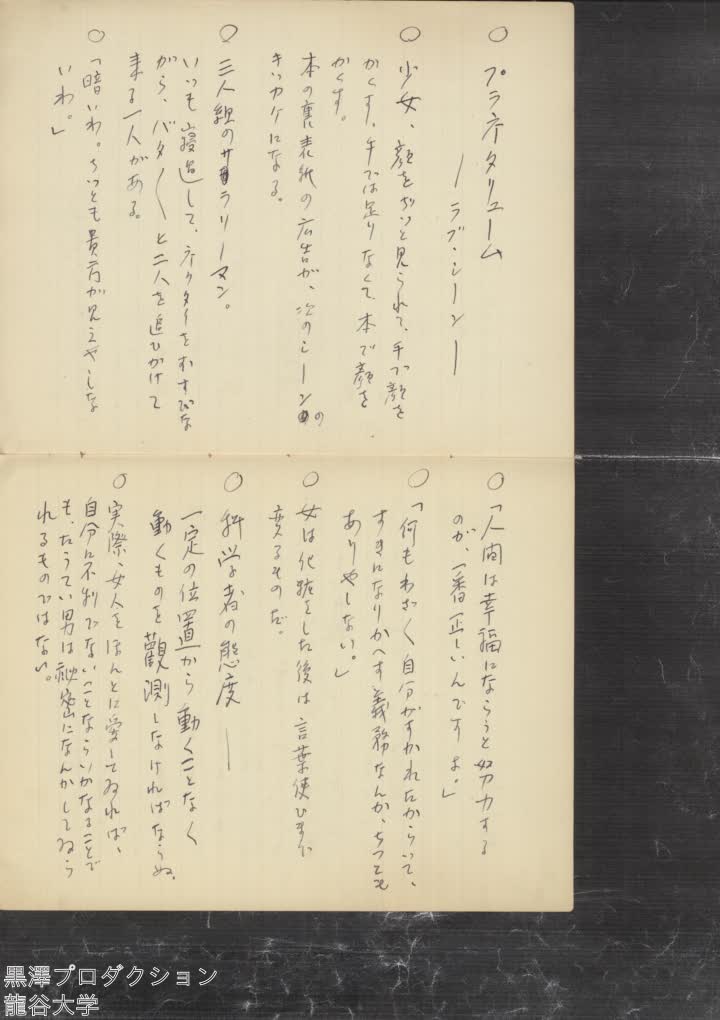 ○ プラネタリューム
―ラブ・シーン―
○ 少女、顔をぢいと見られて、手で顔を
かくす、手では足りなくて、本で顔を
かくす。
本の裏表紙の広告が、次のシーンの
キッカケになる。
○ 三人組のサラリーマン。
いつも寝過して、ネクタイをむすびな
がら、バタ〱と二人を追ひかけて
来る一人がある。
○ 「暗いわ。ちっとも貴方が見えやしな
いわ。」
○ 「人間は幸福にならうと努力する
のが、一番正しいんですよ。」
○ 「何もわざ〱自分がすかれたからつて、
すきになりかへす義務なんか、ちつとも
ありやしない。」
○ 女は化粧をした後は言葉使ひまで
変るものだ。
○ 科学者の態度―
一定の位置から動くことなく
動くものを観測しなければならぬ。
○ 実際、女人をほんとに愛してゐれば、
自分に不利でないことならいかなることで
も、たうてい男は秘密になんかしてゐら
れるものではない。
黒澤プロダクション
龍谷大学